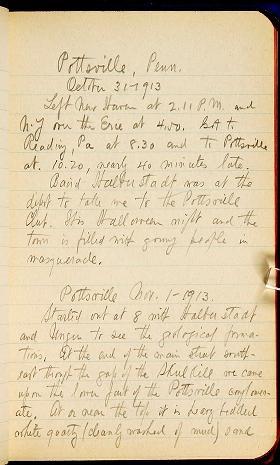 Pottsville, Penn.
October 31-1913
Left New Haven at 2.11 P.M. and
N.Y. over the Erie at 4.00. Got to
Reading, Pa at 8.30 and to Pottsville
at 10.20, nearly 40 minutes late.
David Halberstadt was at the
depot to take me to the Pottsville
Club. It is Halloween night and the
town is filled with young people in
masquerade.
Pottsville Nov. 1-1913.
Started out at 8 with Halberstadt
and to see the geological forma-
tions. At the end of the main street south-
east through the gap of the Skulkill we came
upon the lower part of the Pottsville conglomer-
ate. At or near the top it is heavy bedded
white quartz (cleanly washed of mud) sand